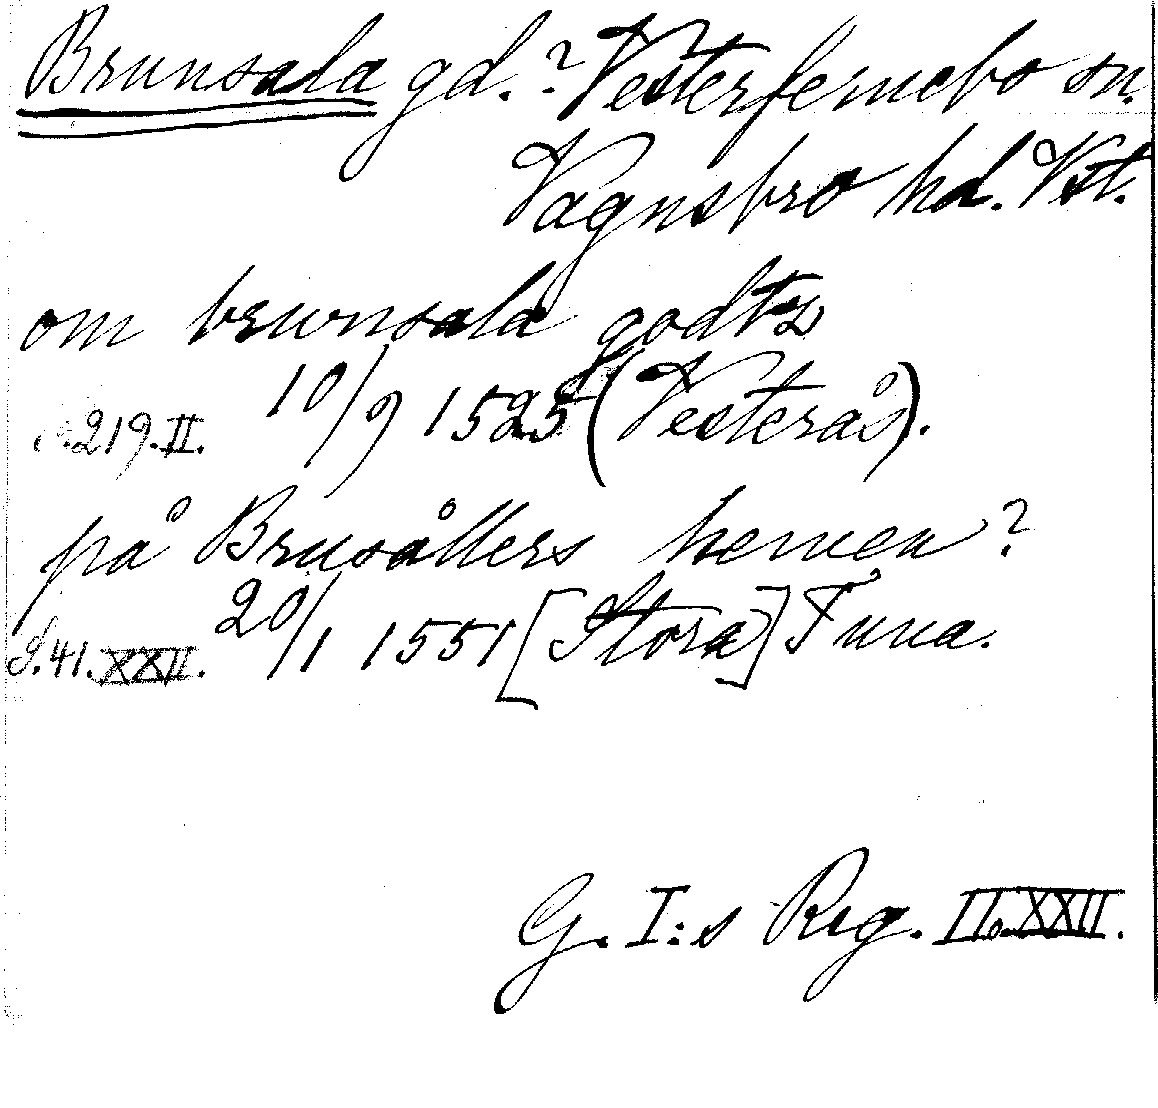 Brunsala gd.? Vesterfernebo sn.
Vagnsbro hd. Vst.
om brwnsala godtz
s.219.II. 10/9 1525 (Vesterås).
på Brusållers hemen?
S.41.XXII. 20/1 1551 [Stora] Tuna.
G. I:s Reg. II o. XXII.